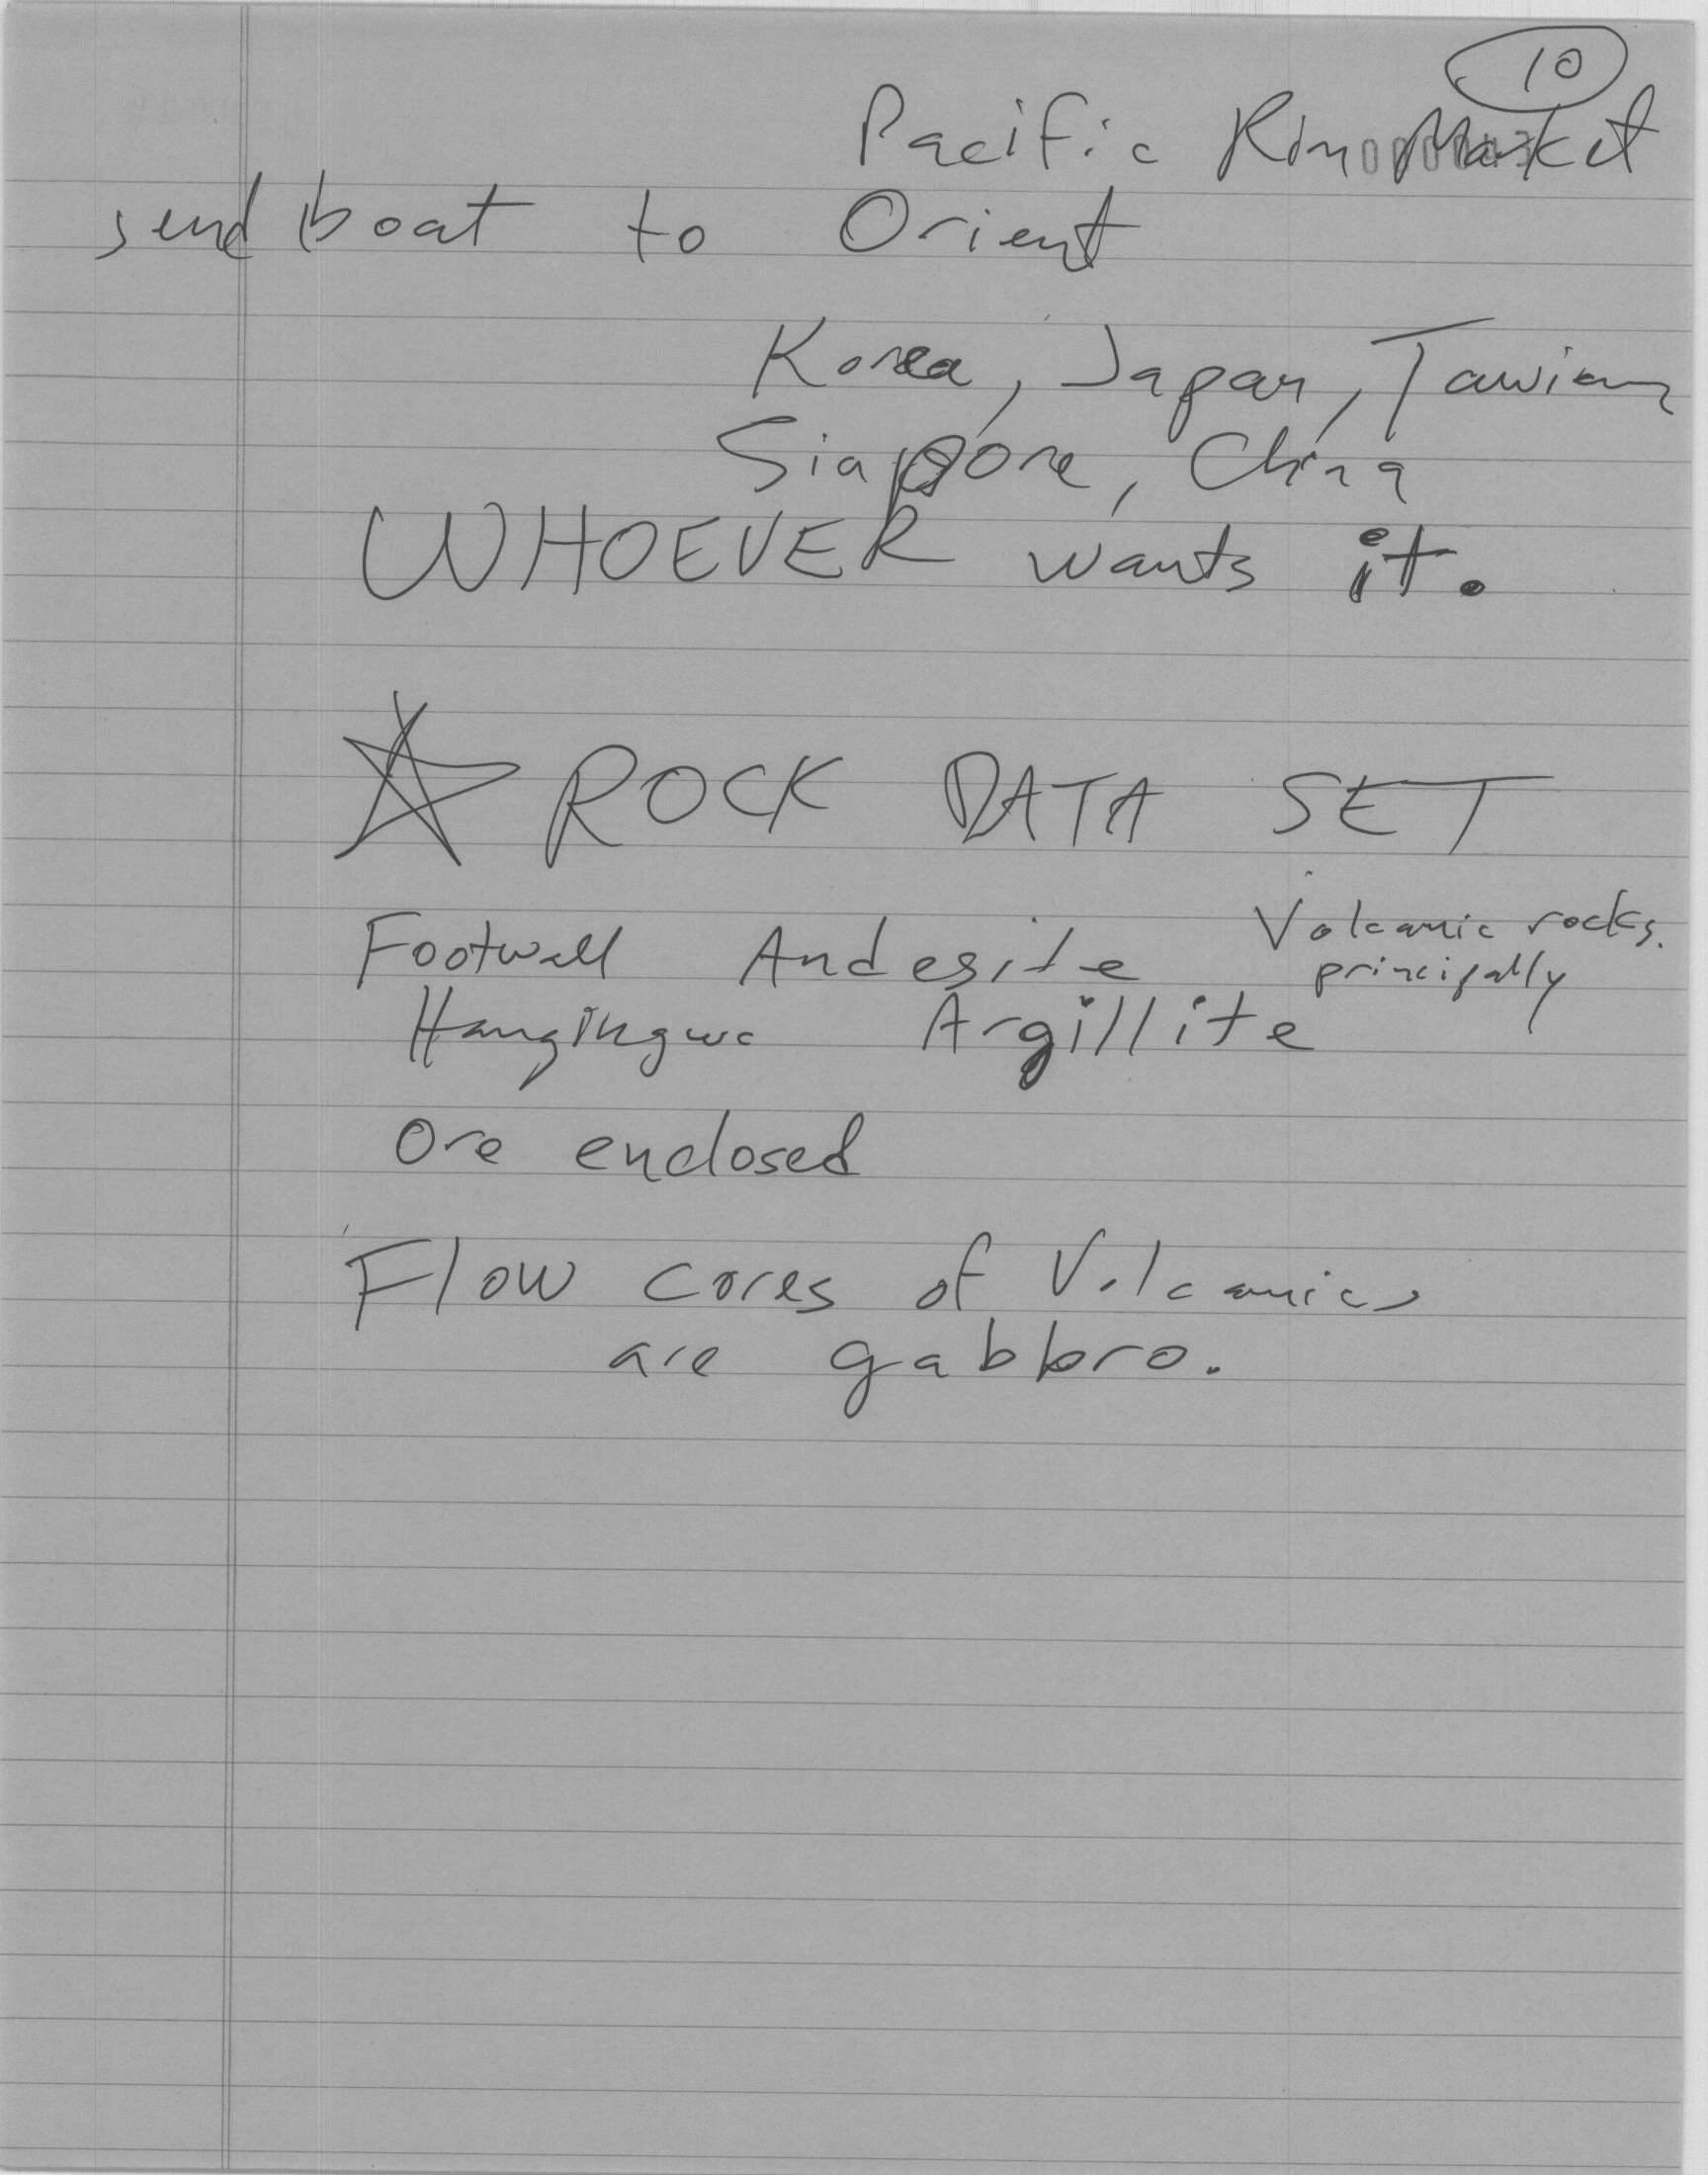 10
Pacific Rim Market
send boat to Orient
Korea, Japan, Tawian
Siapore, China
WHOEVER wants it.
ROCK DATA SET
Footwall Andesite Volcanic rocks.
principally
Hangingwa Argillite
Ore enclosed
Flow cores of Volcanics
are gabbro.